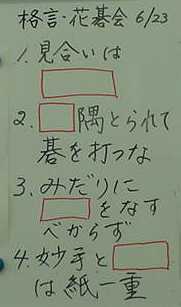 格言・花碁会 6/23
1. 見合いは
2. 隅とられて
碁を打つな
3. みだりに
をなす
べからず
4. 妙手と
は紙一重